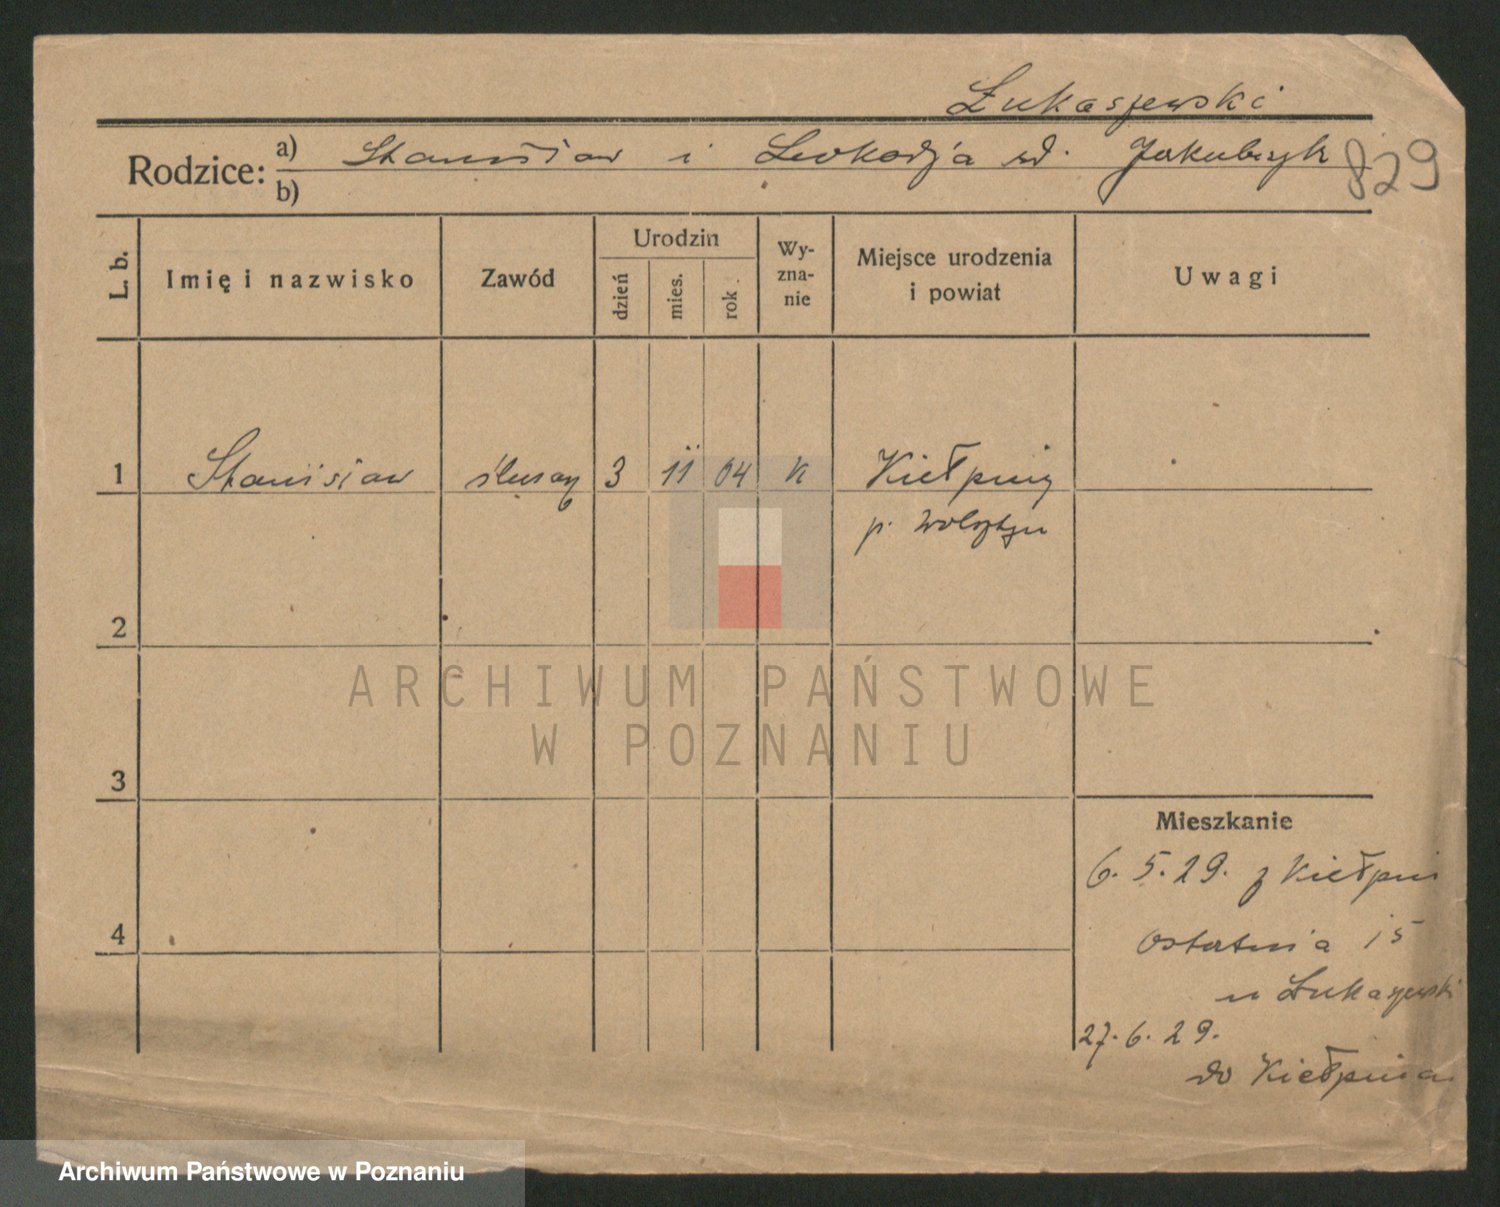 Łukaszewski
Rodzice: a) Stanisław i Leokadja zd. Jakubczyk 829
b)
L. b.
Imię i nazwisko
Zawód
Urodzin
dzień
mies.
rok
Wy-
zna-
nie
Miejsce urodzenia
i powiat
Uwagi
1 Stanisław ślusarz 3 11 04 K Kiełpiny
p. Wolsztyn
2
ARCHIWUM PAŃSTWOWE
W POZNANIU
3
Mieszkanie
6.5.29. z Kiełpin
4
Ostatnia 15
u Łukaszewski
27.6.29.
do Kiełpina
Archiwum Państwowe w Poznaniu